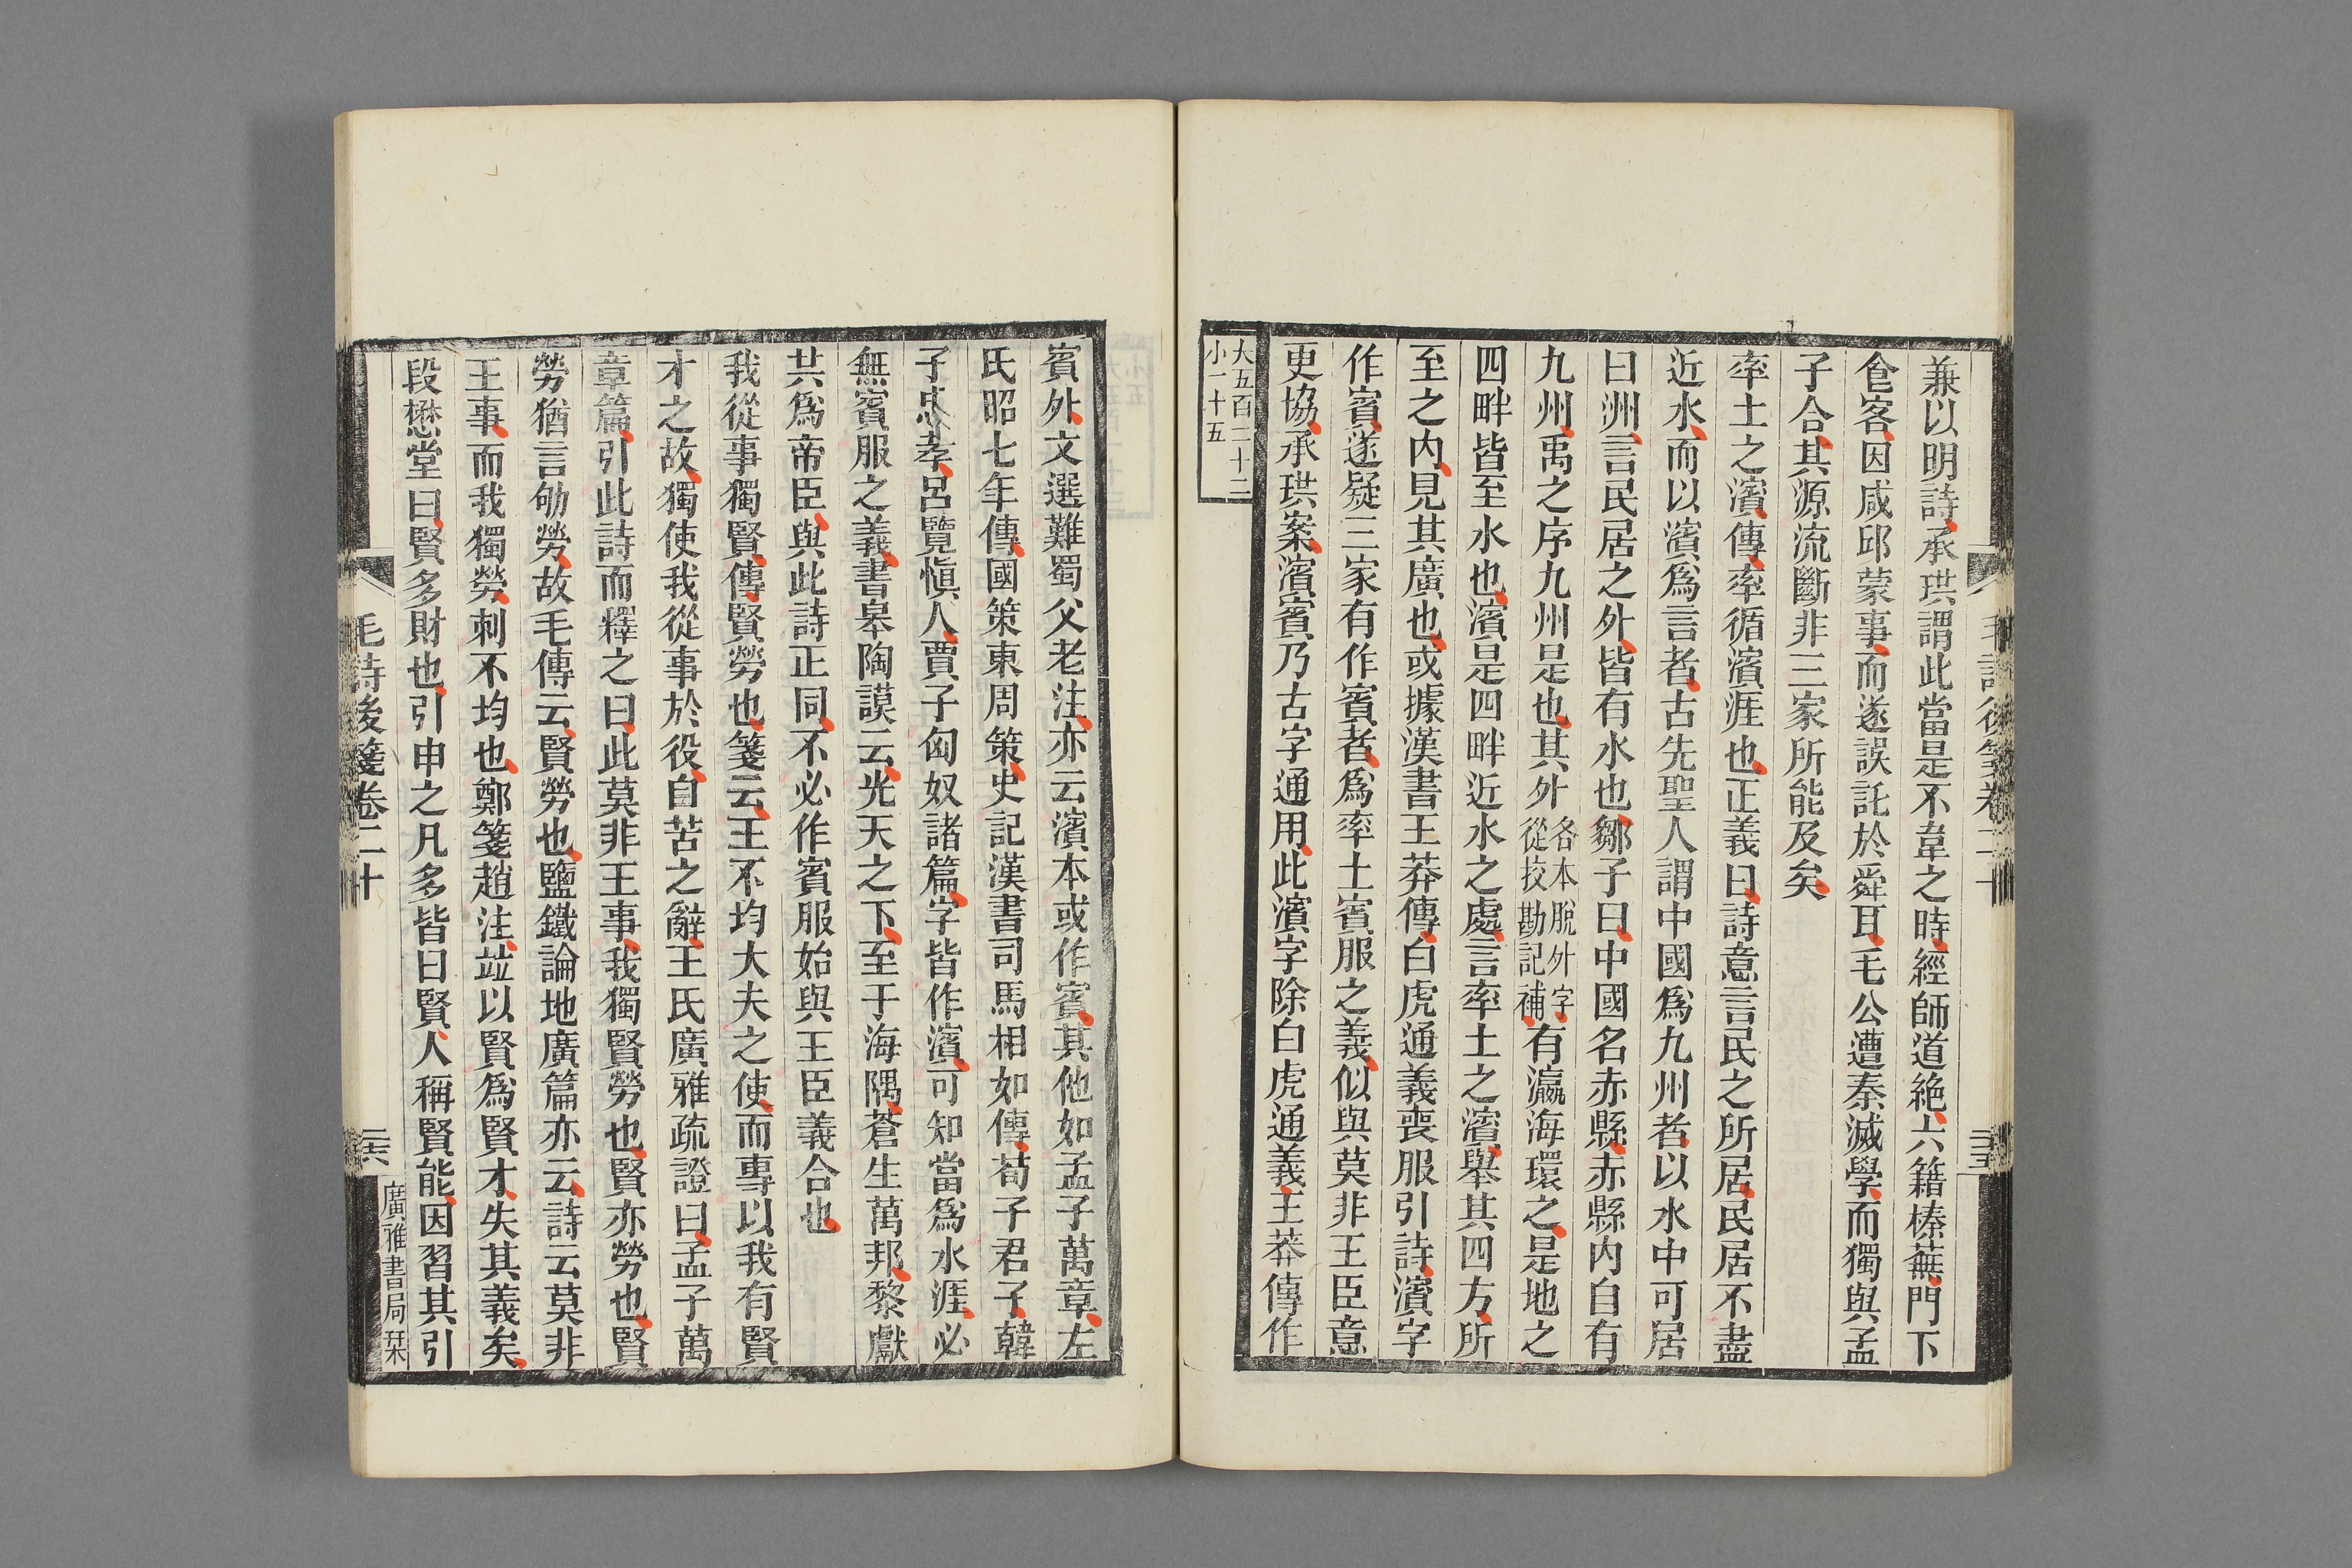 毛詩後箋卷二十
三五
兼以明詩承珙謂此當是不韋之時經師道絶六籍榛蕪門下
食客因咸邱蒙事而遂誤託於舜耳毛公遭秦滅學而獨與孟
子合其源流斷非三家所能及矣
率土之濱傳率循濱涯也正義曰詩意言民之所居民居不盡
近水而以濱爲言者古先聖人謂中國爲九州者以水中可居
曰洲言民居之外皆有水也鄒子曰中國名赤縣赤縣内自有
九州禹之序九州是也其外各本脫外字從挍勘記補有瀛海環之是地之
四畔皆至水也濱是四畔近水之處言率土之濱舉其四方所
至之内見其廣也或據漢書王莽傳白虎通義喪服引詩濱字
作賓遂疑三家有作賓者爲率土賓服之義似與莫非王臣意
更協承珙案濱賓乃古字通用此濱字除白虎通義王莽傳作
大五百二十二
小一十五
賓外文選難蜀父老注亦云濱本或作賓其他如孟子萬章左
氏昭七年傳國策東周策史記漢書司馬相如傳荀子君子韓
子忠孝呂覽愼人賈子匈奴諸篇字皆作濱可知當爲水涯必
無賓服之義書皋陶謨云光天之下至于海隅蒼生萬邦黎獻
共爲帝臣與此詩正同不必作賓服始與王臣義合也
我從事獨賢傳賢勞也箋云王不均大夫之使而專以我有賢
才之故獨使我從事於役自苦之辭王氏廣雅疏證曰孟子萬
章篇引此詩而釋之曰此莫非王事我獨賢勞也賢亦勞也賢
勞猶言劬勞故毛傳云賢勞也鹽鐵論地廣篇亦云詩云莫非
王事而我獨勞刺不均也鄭箋趙注竝以賢爲賢才失其義矣
段懋堂曰賢多財也引申之凡多皆曰賢人稱賢能因習其引
毛詩後箋卷二十
三六
廣雅書局栞